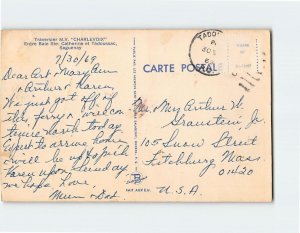 Traversier M.V. "CHARLEVOIX"
Entre Baie Ste. Catherine et Tadoussac,
Saguenay
7/30/69
Dear Art & Mary Ann
& Arthur & Karen,
We just got off of
this ferry & will con-
tinue north today
Expect to arrive home
& will be up to pick
Karey upon Sunday
we hope. Love,
Mum & Dad.
CARTE POSTALE
TADOU
Mr & Mrs Arthur W.
Graustein Jr
105 Snow Street
Fitchburg Mass.
01420
U.S.A.